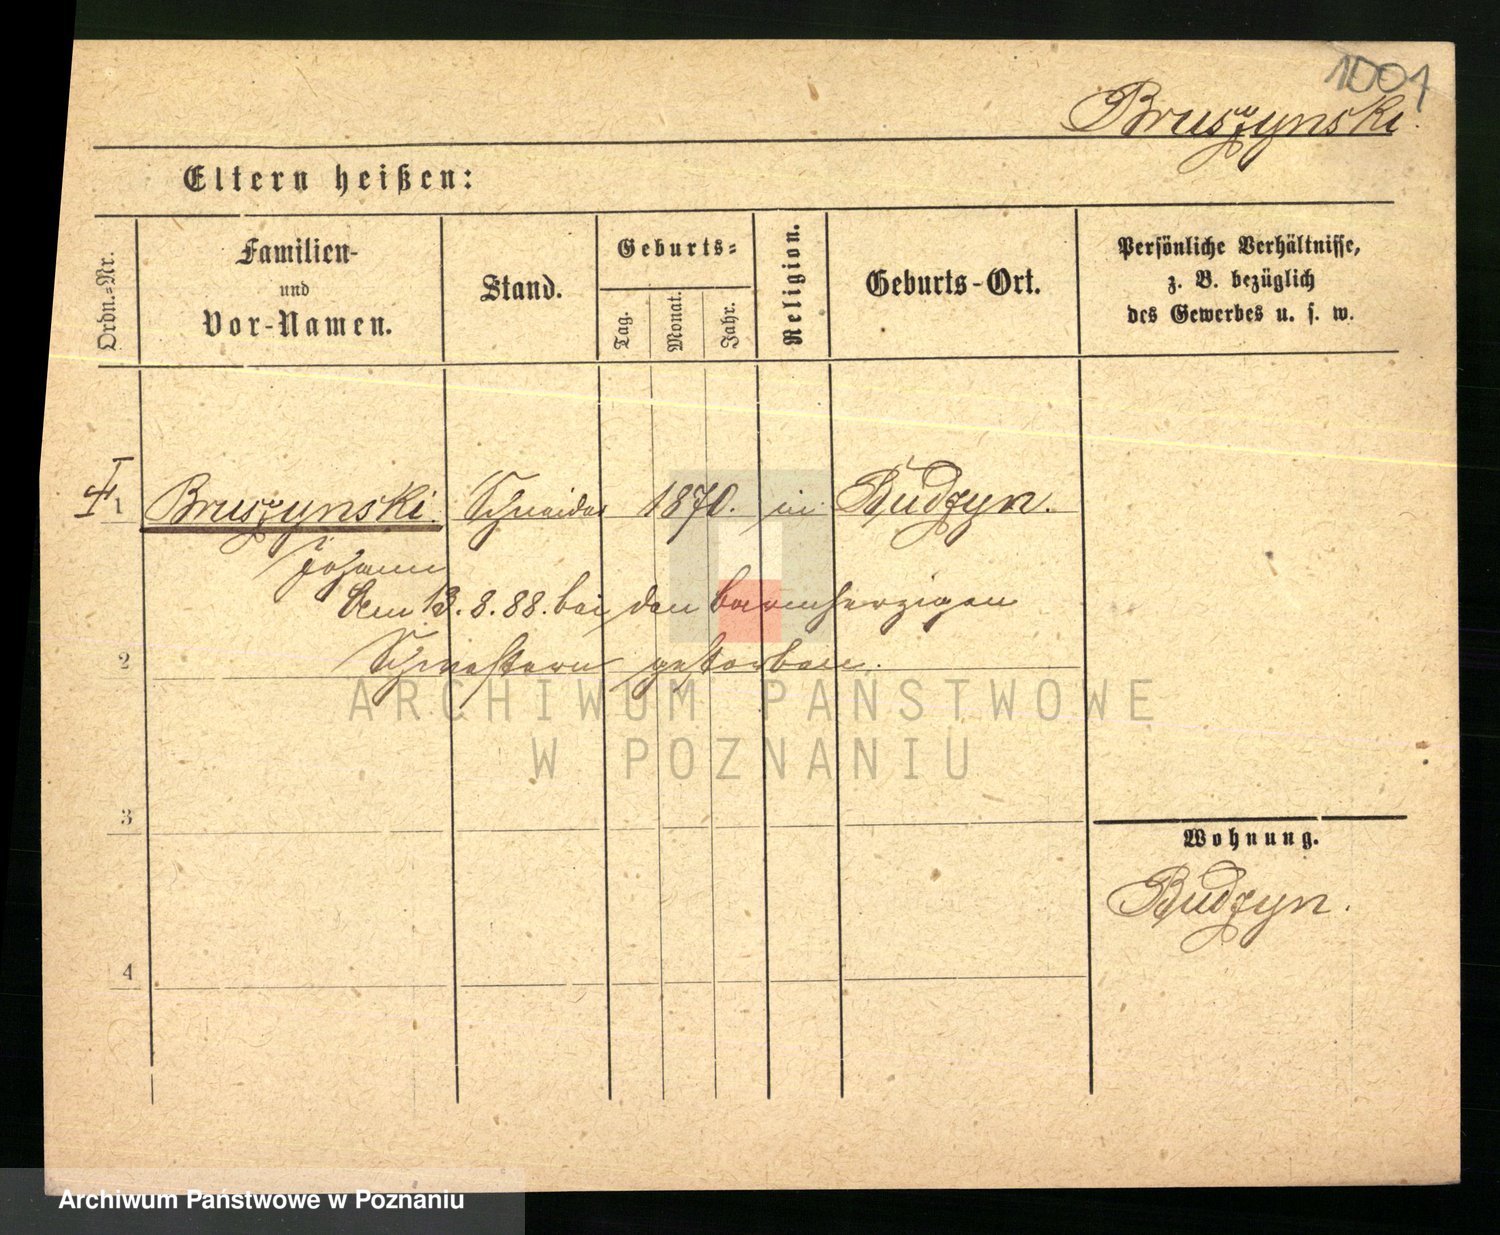 1001
Bruszynski.
Eltern heißen:
Ordn.-Nr.
Familien-
und
Vor-Namen.
Stand.
Geburts-
Tag.
Monat.
Jahr.
Religion.
Geburts-Ort.
Persönliche Verhältnisse,
z. B. bezüglich
des Gewerbes u. s. w.
1 Bruszynski. Schneider 1870. in Budzyn.
Johann
Am 13. 8. 88. bei den barmherzigen
2 Schwestern gestorben.
ARCHIWUM PAŃSTWOWE
W POZNANIU
3
Wohnung.
Budzyn.
4
Archiwum Państwowe w Poznaniu